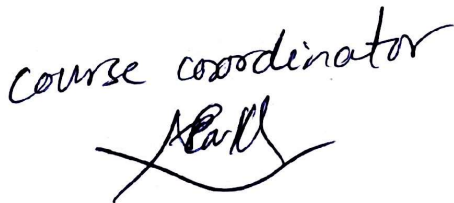 course coordinator